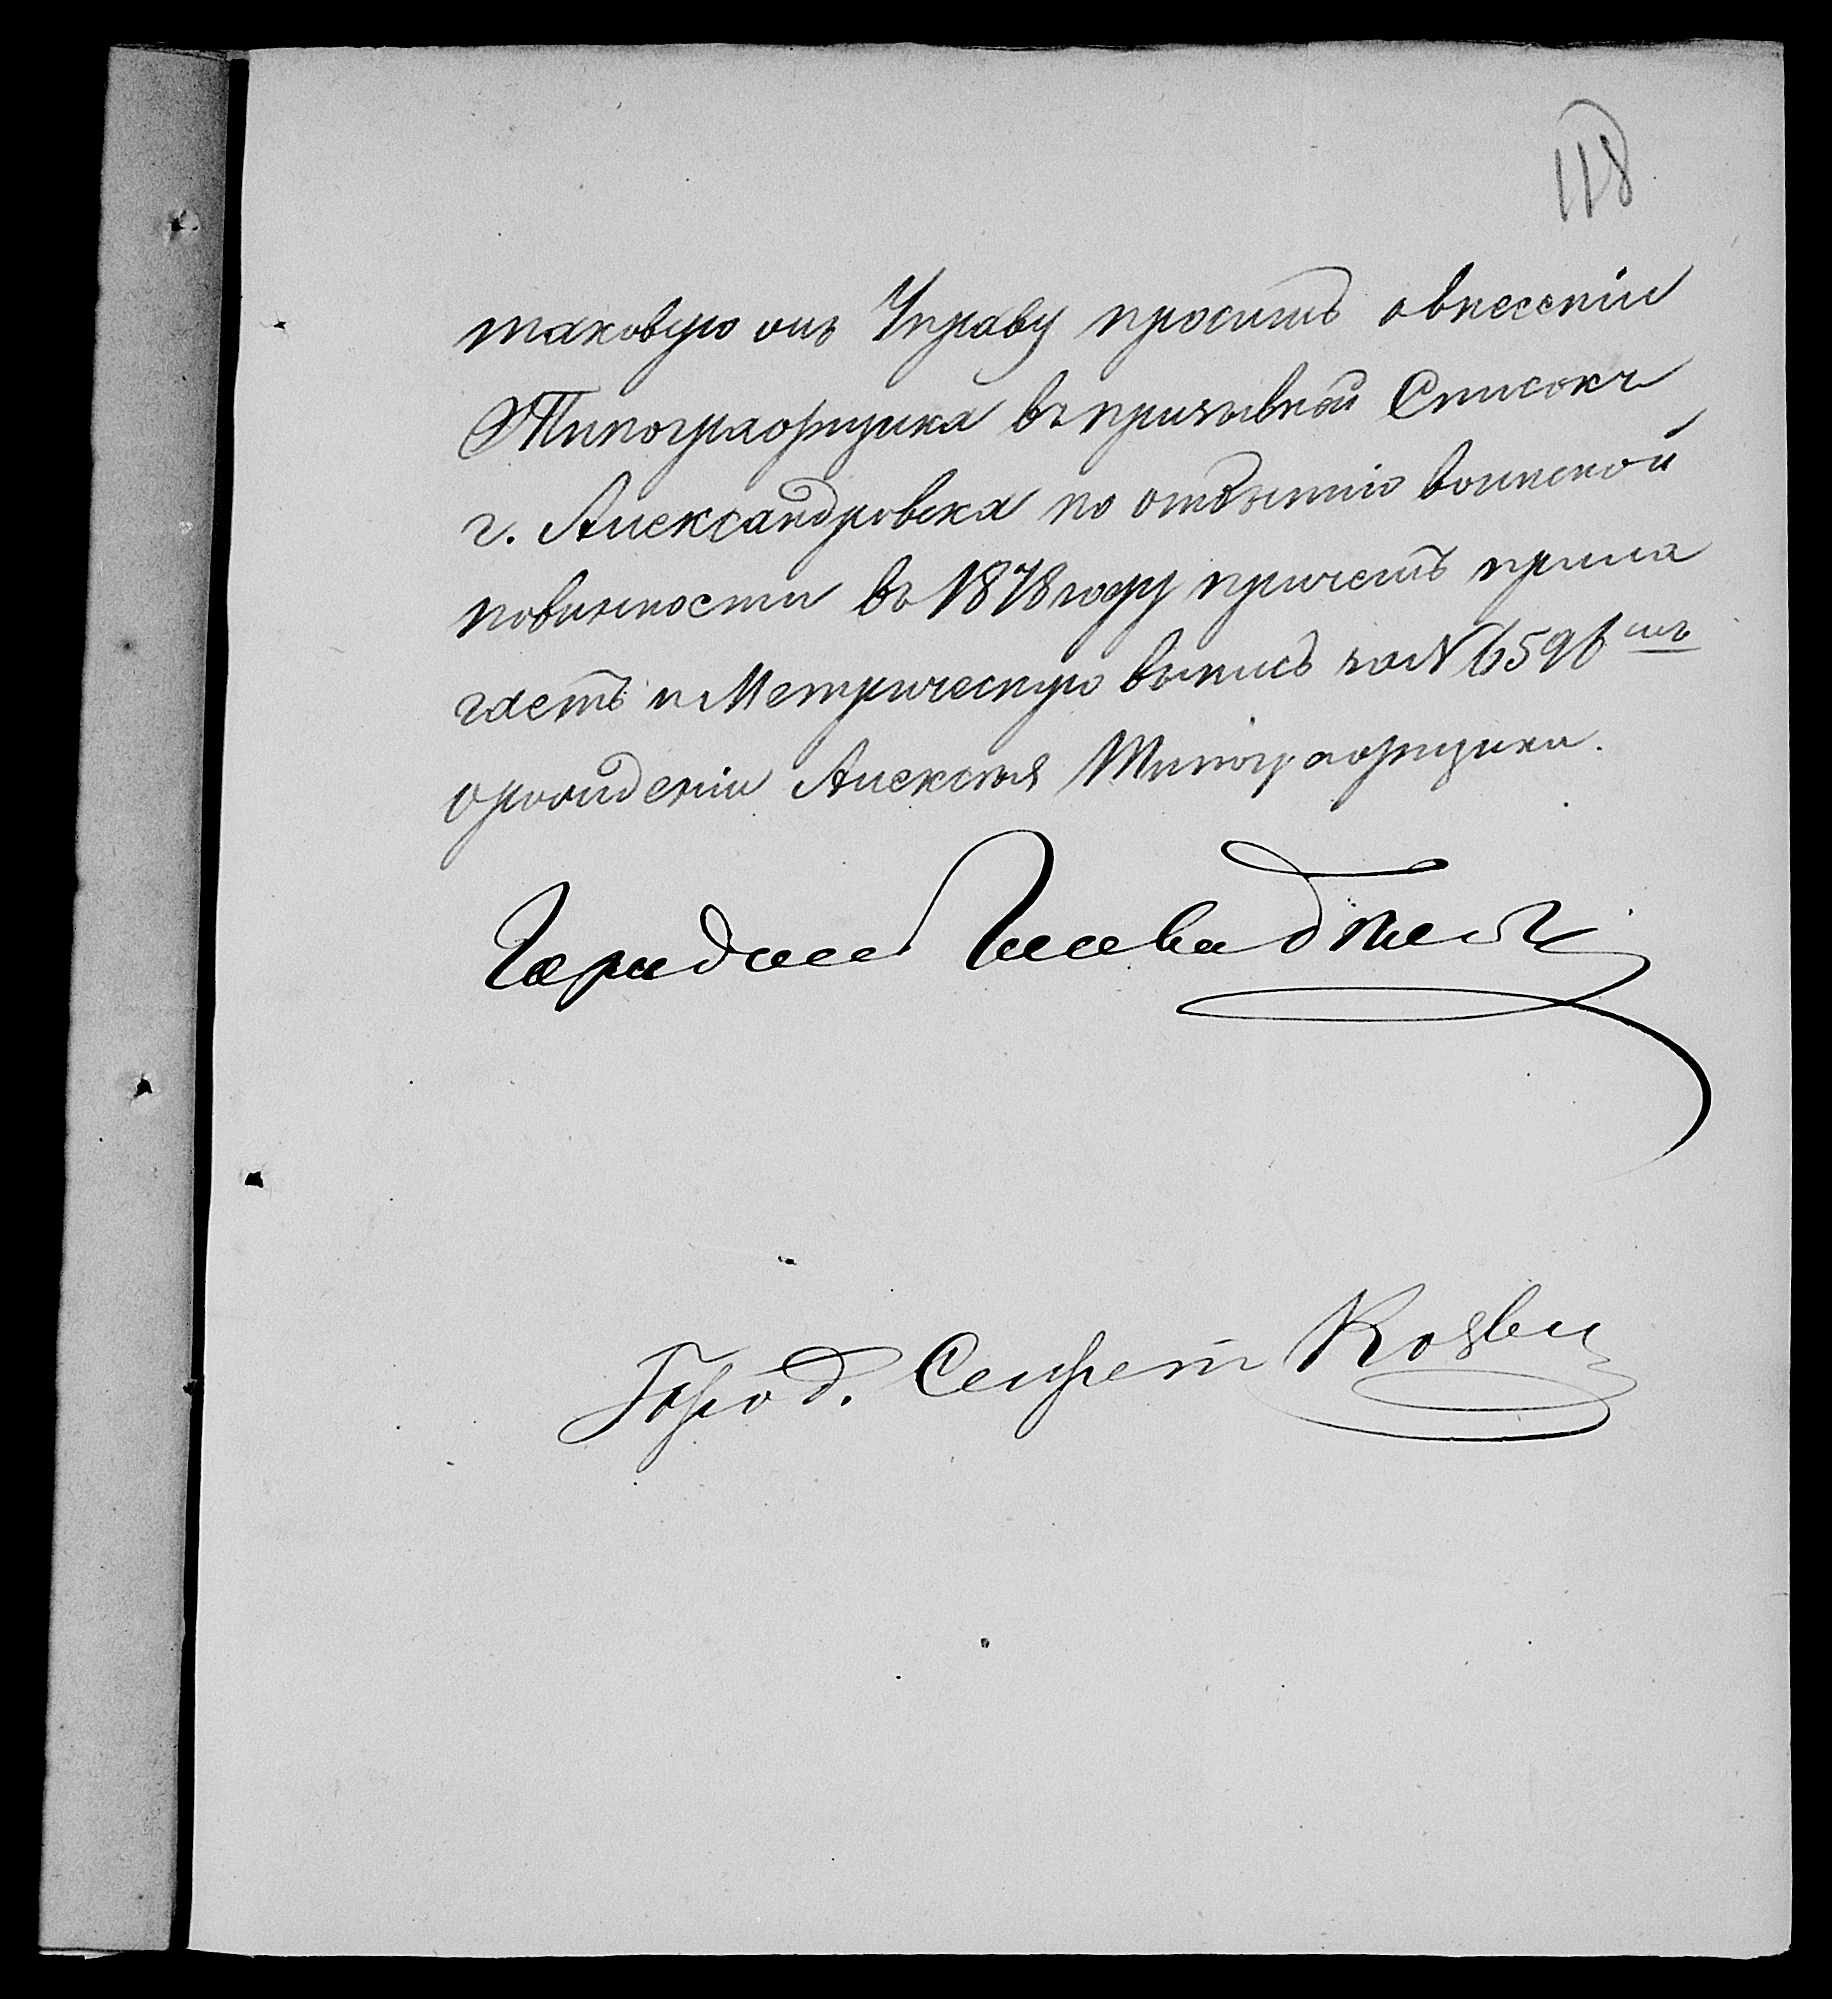 118
таковую онъ Управу проситъ о внесеніи
Типографщика въ призывной Списокъ
г. Александровска по отбытію воинской
повинности въ 1878 году причемъ прила
гаетъ и Метрическую выпись за № 6596
о рожденіи Алексѣя Типографщика.
Город.
Город. Секрет